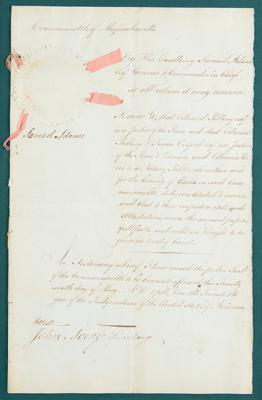 Commonwealth of Massachusetts
By His Excellency Samuel Adams
Esqr Governor & Commander in Chief,
to all whom it may concern
Samuel Adams
Know Ye, that Edward
is a Justice of the Peace, and that Ebenezer
& Esqrs are Justices
of the Peace & and Ebenezer
is a Notary Public, all within and
for the County of Essex in said Common
wealth, duly constituted & sworn
and that to their respective Acts and
Attestations, upon the annexed papers,
full faith and credit is & ought to be
given in & out of Court.
In Testimony whereof I have caused the public Seal
of the Commonwealth to be hereunto affixed this Twenty
day of May A.D. 1796, & in the Twentieth
year of the Independence of the United States of America
Attest
John Avery Secretary